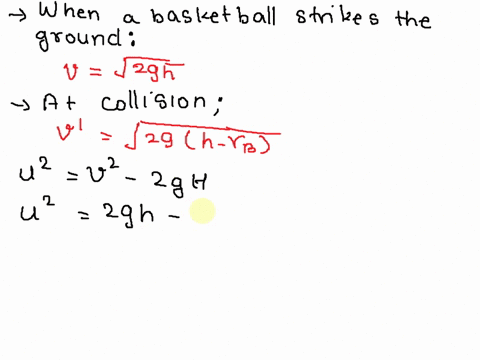 → When a basketball strikes the
ground:
v = √2gh
→ At collision;
v' = √2g (h-rB)
u² = v² - 2gH
u² = 2gh -